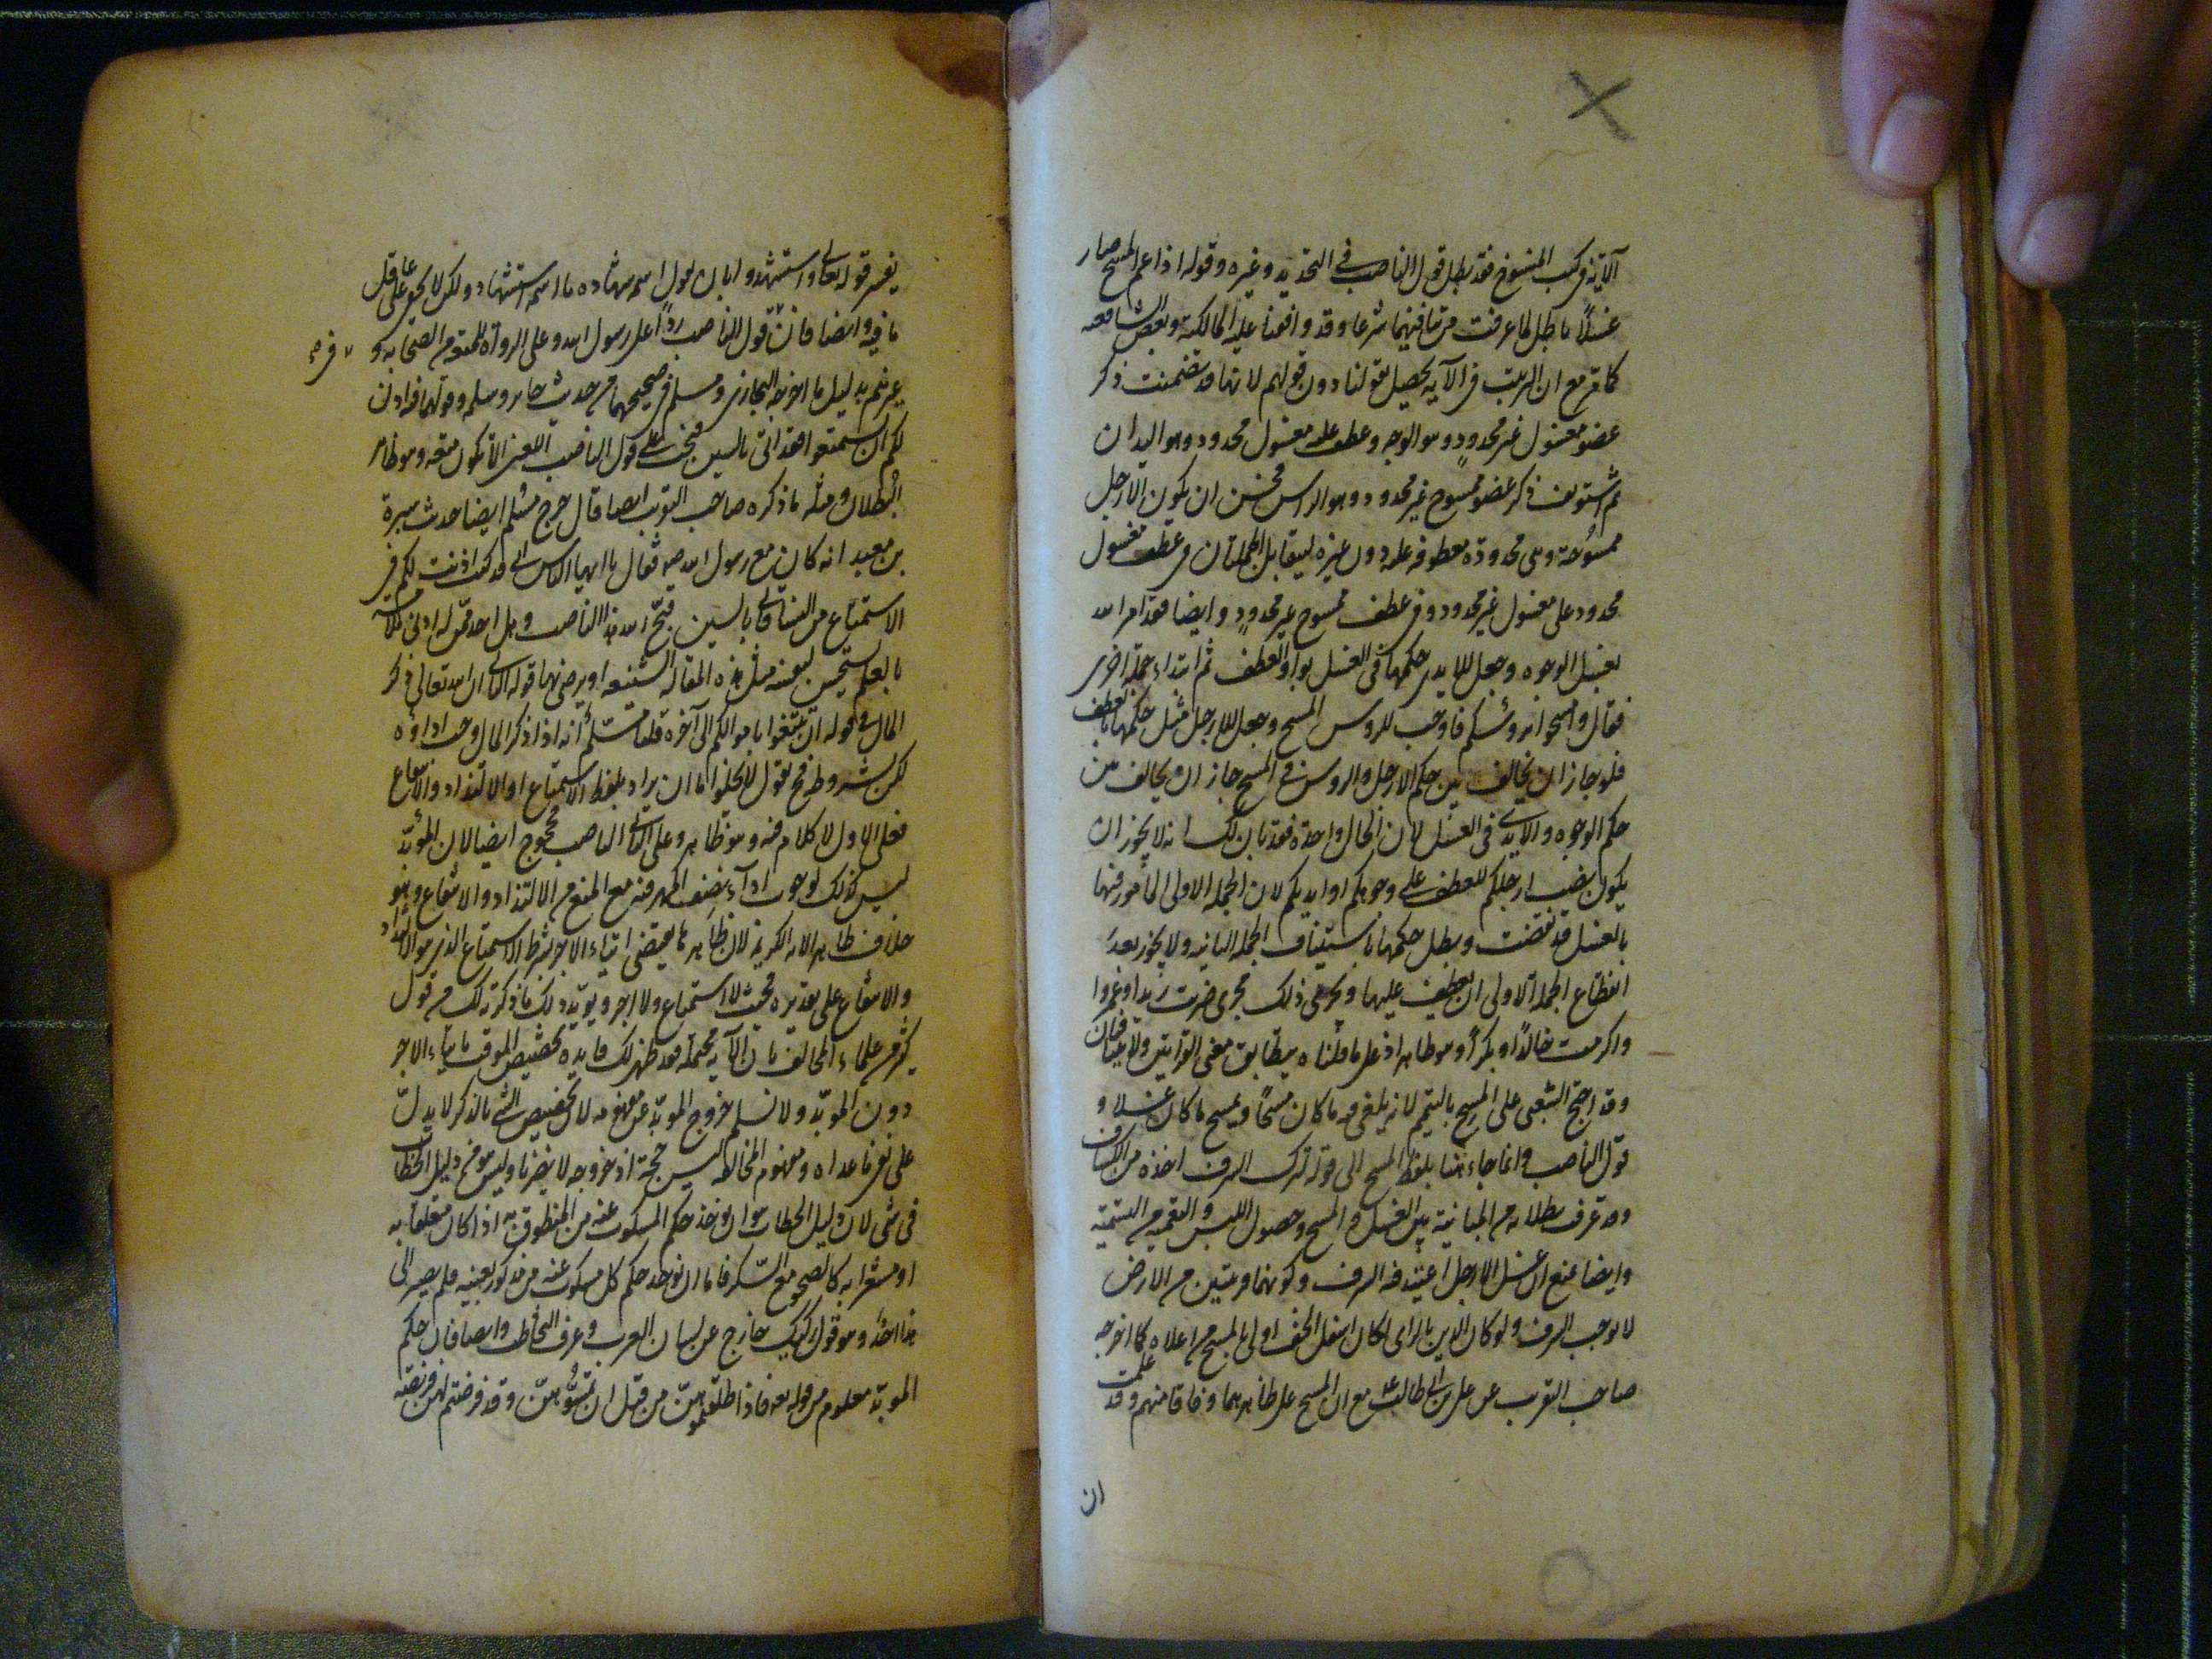 الآية في كتب المنسوخ فقد بطل قول الناصب في التحديد وغيره وقوله اذا عم المسح صار
غسلاً باطل لما عرفت من تنافيهما شرعا وقد وافقنا عليه المالكية وبعض الشافعيه
كما مر مع ان الترتيب في الآيه يحصل بقولنا دون قولهم لانها قد تضمنت ذكر
عضو مغسول غير محدود وهو الوجه وعطف عليه مغسول محدود وهو اليدان
ثم استونف ذكر عضو ممسوح غير محدود وهو الراس فحسن ان يكون الارجل
ممسوحة وهي محدودة معطوفه عليه دون غيره ليتقابل الجملتان في عطف مغسول
محدود على مغسول غير محدود وفي عطف ممسوح غير محدود وايضا فقد امر الله
بغسل الوجوه وجعل للايدي حكمها في الغسل بواو العطف ثم ابتداء جملة اخرى
فقال وامسحوا برؤسكم فاوجب للروس المسح وجعل للارجل مثل حكمها بالعطف
فلو جاز ان يخالف بين حكم الارجل والروس في المسح جاز ان يخالف بين
حكم الوجوه والايدي في الغسل لان الحال واحدة فقد بان لك انه لا يجوز ان
يكون نصب ارجلكم للعطف على وجوهكم او ايديكم لان الجملة الاولى المأمور فيها
بالغسل قد نقضت وبطل حكمها باستيناف الجملة الثانيه ولا يجوز بعد
انقطاع الجملة الاولى ان يعطف عليها ويجري ذلك مجرى ضربت زيدا وعمروا
واكرمت خالداً وبكراً وهو ظاهر اذ على ما قلناه يتطابق معنى القراءتين ولا يتنافيان
وقد احتج الشعبي على المسح بالتيمم لانه يلغي فيه ما كان مسحاً ويمسح ما كان غسلا و
قول الناصب وانما جاء هنا بلفظ المسح الى قوله ترك السرف اخذه من الكشاف
وقد عرف بطلانه من المباينة بين الغسل والمسح وحصول اللبس والتعميه من التسمية
وايضا نمنع ان غسل الارجل اعيد فيه السرف وكونهما قريبتين من الارض
لا يوجب السرف ولو كان الدين بالراى لكان اسفل الخف اولى بالمسح من اعلاه كما اخرجه
صاحب التقريب عن على بن ابى طالب ع مع ان المسح على ظاهرهما وفاقا منهم وقد علمت
ان
يفسر قوله تعالى واستشهدوا بان يقول اسم شهادة ما اسم استشهاد ولكن لا يخفى على عاقل
ما فيه وايضا فان قول الناصب ردا على رسول الله وعلى الرواة للمتعه من الصحابه و
غيرهم بدليل ما اخرجه البخاري ومسلم في صحيحهما من حديث جابر وسلمه وقولهما قد اذن
لكم ان تستمتعوا هذا التى بالسين فيجب على قول الناصب اللعين الا تكون متعه وهو ظاهر
البطلان ومثله ما ذكره صاحب التقريب ايضا قال خرج مسلم ايضا حديث سبرة
بن معبد انه كان مع رسول الله ص فقال يا ايها الناس انى قد كنت اذنت لكم في
الاستمتاع من النساء فاتى بالسين قبح الله هذا الناصب وهل احد ممن له ادنى ملامسة
بالعلم يستحسن لنفسه مثل هذه المقالة الشنيعه او يرضى بها قوله الثانى ان الله تعالى ذكر
المال في قوله ان تبتغوا باموالكم الى آخره قلنا مسلم انه اذا ذكر المال وجب اداؤه
لكن بشروطه فح نقول لا يخلوا اما ان يراد بلفظ الاستمتاع او الالتذاذ والانتفاع
فعلى الاول لا كلام فيه وهو ظاهر وعلى الثانى الناصب محجوج ايضا لان المؤبد
ليس كذلك لوجوب اداء نصف المهر فيه مع المنع من الالتذاذ والانتفاع وهو
خلاف ظاهر الآية الكريمة لان ظاهرها يقتضى ايتاء الاجر بشرط الاستمتاع الذي هو الالتذاذ
والانتفاع على تقديره فحيث لا استمتاع ولا اجر ويؤيد ذلك ما ذكرته لك من قول
كثير من علماء المخالف بان الآيه محتملة فقد ظهر لك فايده تخصيص الموقت بايتاء الاجر
دون المؤبد ولا نسلم خروج المؤبد عن مفهومه لان تخصيص الشئ بالذكر لا يدل
على نفى ما عداه ومفهوم المخالفه ليس حجة اذ خروجه لا يضرنا وليس هو من دليل الخطاب
في شئ لان دليل الخطاب هو ان يؤخذ حكم المسكوت عنه من المنطوق به اذا كان متعلقا به
او مشعرا به كالصحو مع السكر فاما ان يؤخذ حكم كل مسكوت عنه من مذكور بعينه فلم يصر الى
هذا احد وهو قول ركيك خارج عن لسان العرب وعرف التخاطب وايضا فان حكم
المؤبد معلوم من قوله تعه فاذا طلقتموهن من قبل ان تمسوهن وقد فرضتم لهن فريضة